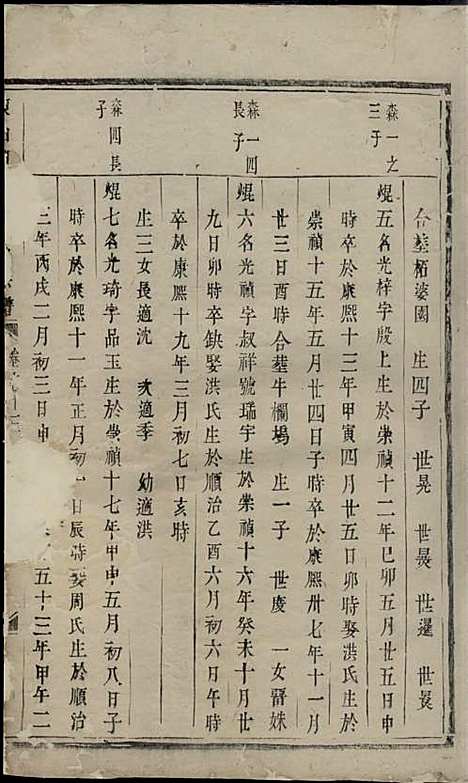 合墓栢婆園 生四子 世晃 世㬎 世暹 世晸
森一之三子
焜五名光梓字殷上生於崇禎十二年己卯五月廿五日申
時卒於康熙十三年甲寅四月廿五日卯時娶洪氏生於
崇禎十五年五月廿四日子時卒於康熙卅七年十一月
廿三日酉時合墓牛欄塢 生一子 世慶 一女
森一四長子
焜六名光禎字叔祥號瑞宇生於崇禎十六年癸未十月廿
九日卯時卒缺娶洪氏生於順治乙酉六月初六日午時
卒於康熙十九年三月初七日亥時
生三女長適沈 次適季 幼適洪
森四長子
焜七名光琦字品玉生於崇禎十七年甲申五月初八日子
時卒於康熙十一年正月初一日辰時娶周氏生於順治
三年丙戌二月初三日申 五十三年甲午二